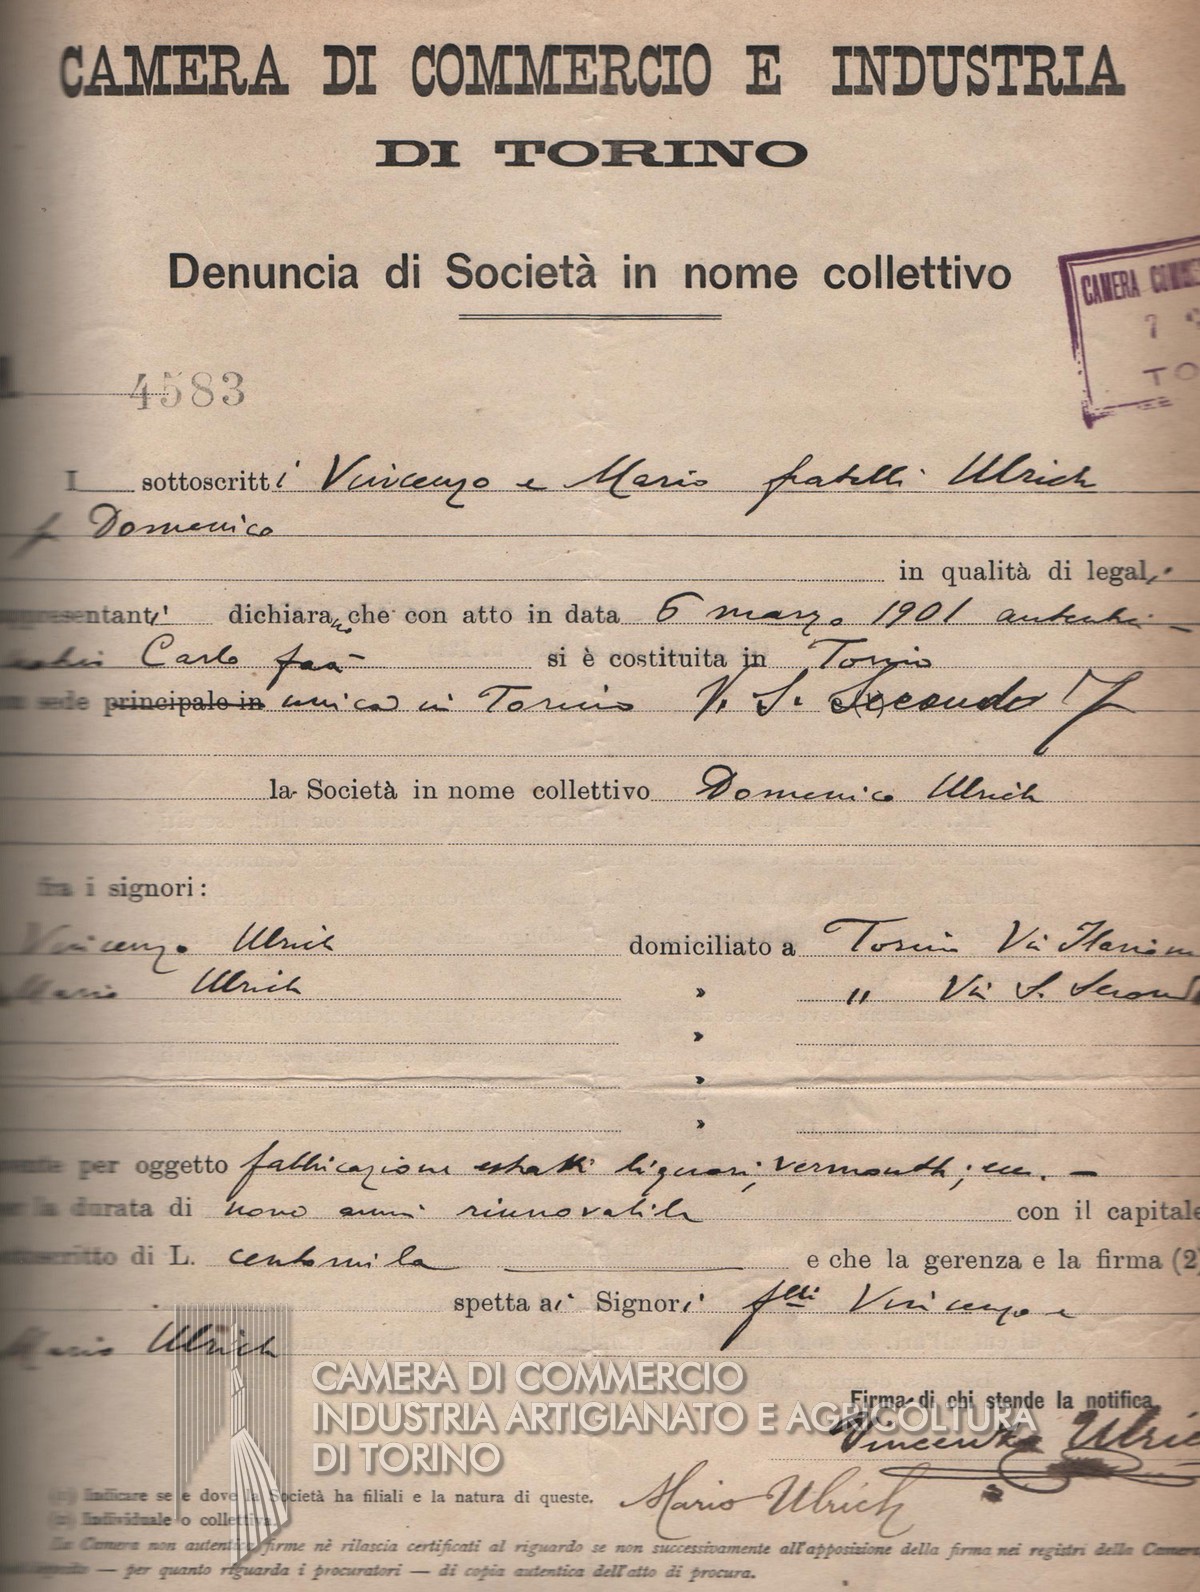 CAMERA DI COMMERCIO E INDUSTRIA
DI TORINO
Denuncia di Società in nome collettivo
CAMERA COMME
7
TO
4583
I sottoscritti Vincenzo e Mario fratelli Ulrich
f Domenico
in qualità di legali
rappresentanti dichiarano che con atto in data 6 marzo 1901
Carlo si è costituita in Torino
sede principale in unica in Torino V. S. Secondo
la Società in nome collettivo Domenico Ulrich
fra i signori:
Vincenzo Ulrich domiciliato a Torino Via
Mario Ulrich » " Via S. Second
»
»
»
ente per oggetto fabbricazione estratti liquori, vermouth, ecc. —
per la durata di nove anni rinnovabile con il capitale
sottoscritto di L. centomila e che la gerenza e la firma (2)
spetta ai Signori f.lli Vincenzo e
Mario Ulrich
CAMERA DI COMMERCIO
INDUSTRIA ARTIGIANATO E AGRICOLTURA
DI TORINO
Firma di chi stende la notifica
Vincenzo Ulric
Mario Ulrich
(1) Indicare se e dove la Società ha filiali e la natura di queste.
(2) Individuale o collettiva.
La Camera non autentica firme nè rilascia certificati al riguardo se non successivamente all'apposizione della firma nei registri della Camera
— per quanto riguarda i procuratori — di copia autentica dell'atto di procura.